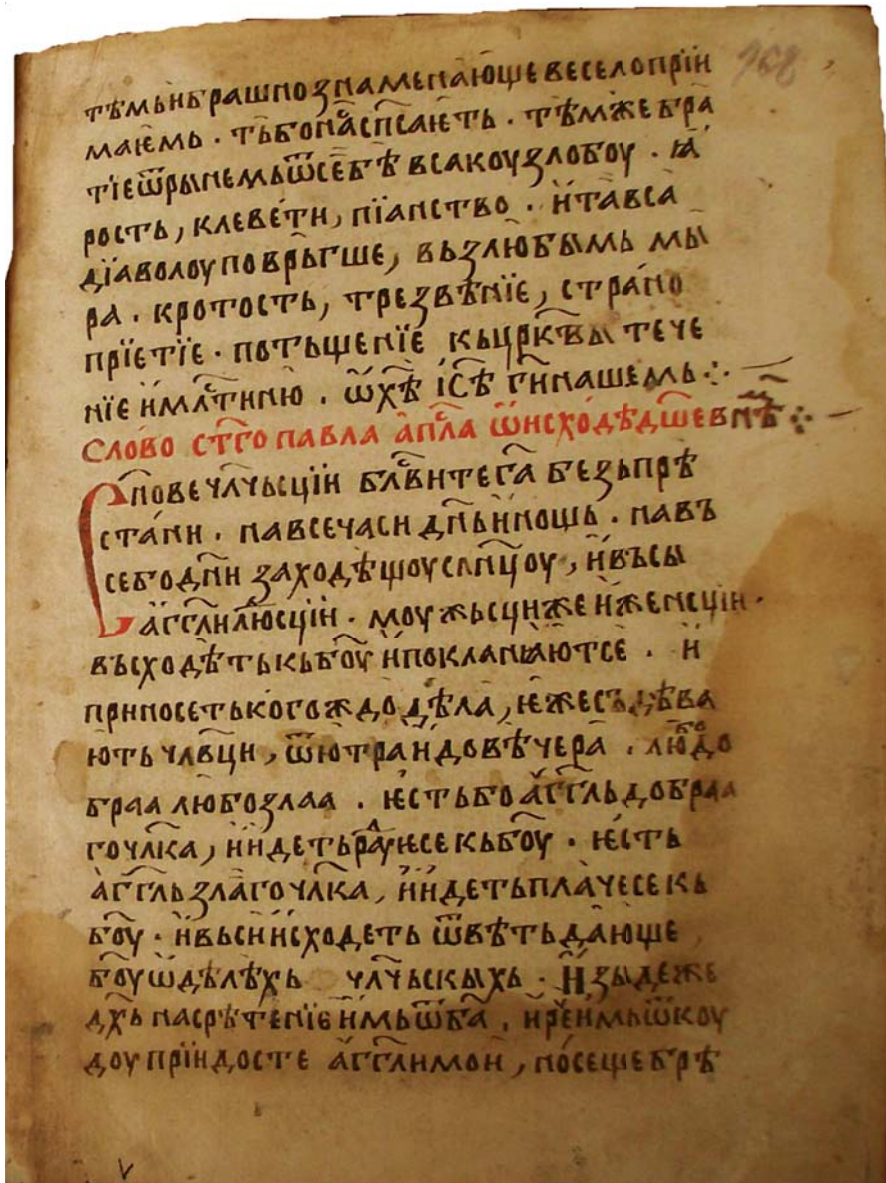 тѣмьнбрашно знаменающе весело прїи
маюмь · тьбонасп҃саѥть · тѣмже бра
тїе ѿрынемь ѿ себѣ всакоу злобоу · ꙗ
рость, клевети, пїанство · и тав҆са
дїаволоу поврьгше, вьзлюбымь мы
ра · кротость, трезвѣнїе, страно
прїетїе · потьщенїе кь цр҃квы тече
нїе и мл҃стиню · ѡ х҃ѣ і҃сѣ г҃и нашемь ⁘
Слово ст҃го павла ап҃ла ѿ исходѣ д҃ше внѣ ⁘
Сн҃ове чл҃чьсцїи бл҃вите г҃а безьпрѣ
стани · на все часи дн҃ь и нощь · навъ
се бо дн҃и заходѣщоу сл҃нцоу, и въсы
аг҃гли людсцїи · моужьсциже и женсцїи ·
въсходѣть кь б҃оу и покланꙗютсе · и
приносеть когождо дѣла, ꙗже съдѣва
ють чл҃вци, ѿ ютра и до вѣчера · любо до
браа любо злаа · ѥсть бо аг҃гль добраа
го чл҃ка, и идеть радуѥсе кь б҃оу · ѥсть
аг҃гль злаго чл҃ка, и идеть плачесе кь
б҃оу · и вьси исходеть ѿвѣть дающе
б҃оу ѡ дѣлѣхь чл҃чьскыхь · И зыдеже
дх҃ь на срѣтенїе имь ѿ б҃а, и реⷱ҇ имь ѿкоу
доу прїидосте аг҃гли мои, носеще брѣ